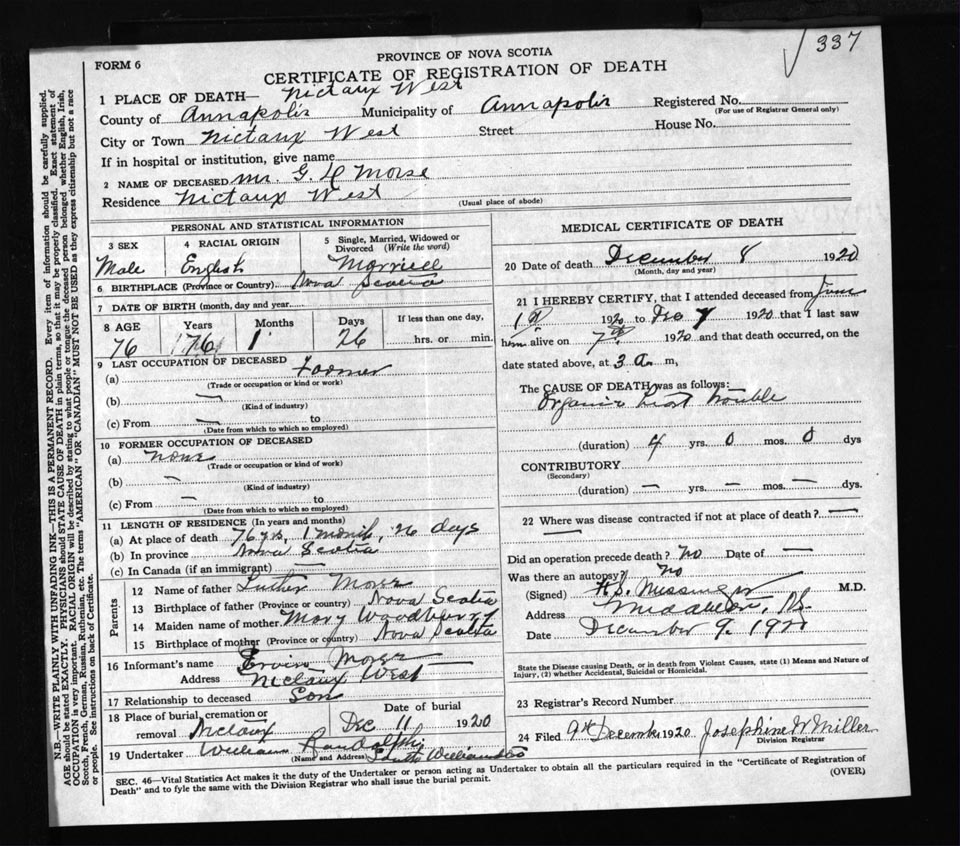 337
PROVINCE OF NOVA SCOTIA
FORM 6
CERTIFICATE OF REGISTRATION OF DEATH
Nictaux West
1 PLACE OF DEATH—
County of Annapolis Municipality of Annapolis Registered No.
(For use of Registrar General only)
City or Town Nictaux West Street House No.
If in hospital or institution, give name
2 NAME OF DECEASED Mr. G. Morse
Residence Nictaux West (Usual place of abode)
PERSONAL AND STATISTICAL INFORMATION
3 SEX 4 RACIAL ORIGIN 5 Single, Married, Widowed or Divorced (Write the word)
Male English Married
6 BIRTHPLACE (Province or Country) Nova Scotia
7 DATE OF BIRTH (month, day and year)
8 AGE Years Months Days If less than one day,
76 76 1 26 hrs. or min.
9 LAST OCCUPATION OF DECEASED
(a) Farmer
(Trade or occupation or kind of work)
(b) —
(Kind of industry)
(c) From — to
(Date from which to which so employed)
10 FORMER OCCUPATION OF DECEASED
(a) none
(Trade or occupation or kind of work)
(b) —
(Kind of industry)
(c) From — to
(Date from which to which so employed)
11 LENGTH OF RESIDENCE (In years and months)
(a) At place of death 76 yrs, 1 month, 26 days
(b) In province Nova Scotia
(c) In Canada (if an immigrant) —
Parents
12 Name of father Luther Morse
13 Birthplace of father (Province or country) Nova Scotia
14 Maiden name of mother Mary Woodbury
15 Birthplace of mother (Province or country) Nova Scotia
16 Informant's name Ervin Morse
Address Nictaux West
17 Relationship to deceased Son
18 Place of burial, cremation or removal Nictaux
Date of burial Dec 11 1920
19 Undertaker William Randolph
(Name and Address) South Williamston
MEDICAL CERTIFICATE OF DEATH
20 Date of death December 8 1920
(Month, day and year)
21 I HEREBY CERTIFY, that I attended deceased from June
1st 1920 to Dec 7 1920 that I last saw
him alive on 7th 1920 and that death occurred, on the
date stated above, at 3 a. m,
The CAUSE OF DEATH was as follows:
Organic heart trouble
(duration) 4 yrs. 0 mos. 0 dys
CONTRIBUTORY
(Secondary)
(duration) — yrs. — mos. — dys.
22 Where was disease contracted if not at place of death? —
Did an operation precede death? No Date of —
Was there an autopsy? No
(Signed) Messinger M.D.
Address Middleton, N.S.
Date December 9, 1920
State the Disease causing Death, or in death from Violent Causes, state (1) Means and Nature of
Injury, (2) whether Accidental, Suicidal or Homicidal.
23 Registrar's Record Number
24 Filed 9th December 1920 Josephine W Miller
Division Registrar
SEC. 46—Vital Statistics Act makes it the duty of the Undertaker or person acting as Undertaker to obtain all the particulars required in the "Certificate of Registration of
Death" and to fyle the same with the Division Registrar who shall issue the burial permit.
(OVER)
N.B.—WRITE PLAINLY WITH UNFADING INK—THIS IS A PERMANENT RECORD. Every item of information should be carefully supplied.
AGE should be stated EXACTLY. PHYSICIANS should STATE CAUSE OF DEATH in plain terms, so that it may be properly classified. Exact statement of
OCCUPATION is very important. RACIAL ORIGIN will be described by stating to what people or tongue the deceased person belonged whether English, Irish,
Scotch, French, German, Russian, Ruthenian, etc. The terms "AMERICAN" OR "CANADIAN" MUST NOT BE USED as they express citizenship but not a race
or people. See instructions on back of Certificate.